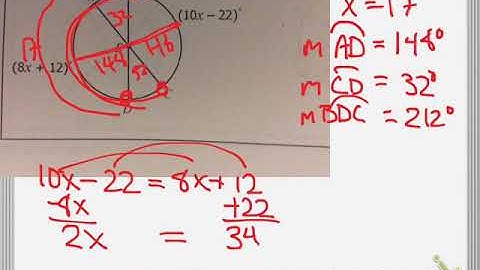 x = 17
32
(10x − 22)°
B
148
148
(8x + 12)
32
D
C
m AD = 148°
m CD = 32°
m BDC = 212°
10x − 22 = 8x + 12
-8x +22
2x = 34